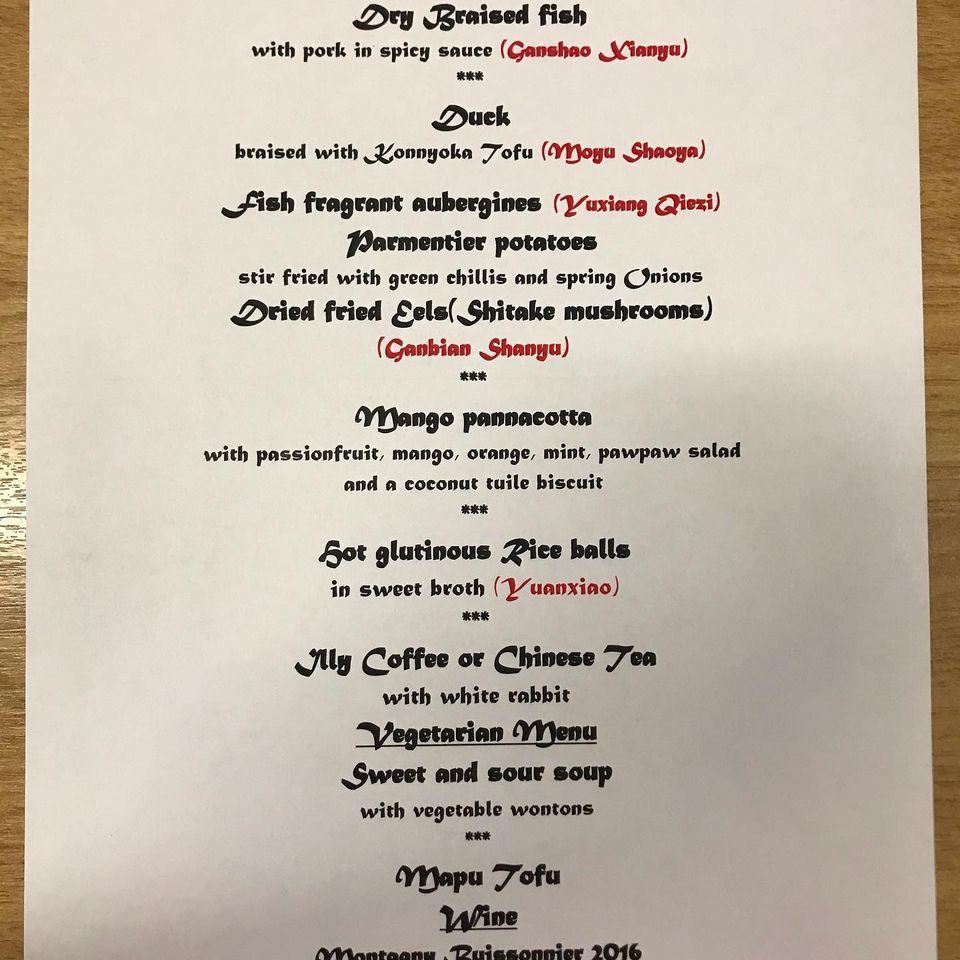 Dry Braised fish
with pork in spicy sauce (Ganshao Xianyu)
***
Duck
braised with Konnyoka Tofu (Moyu Shaoya)
Fish fragrant aubergines (Yuxiang Qiezi)
Parmentier potatoes
stir fried with green chillis and spring Onions
Dried fried Eels(Shitake mushrooms)
(Ganbian Shanyu)
***
Mango pannacotta
with passionfruit, mango, orange, mint, pawpaw salad
and a coconut tuile biscuit
***
Hot glutinous Rice balls
in sweet broth (Yuanxiao)
***
Illy Coffee or Chinese Tea
with white rabbit
Vegetarian Menu
Sweet and sour soup
with vegetable wontons
***
Mapu Tofu
Wine
Montagny Buissonnier 2016